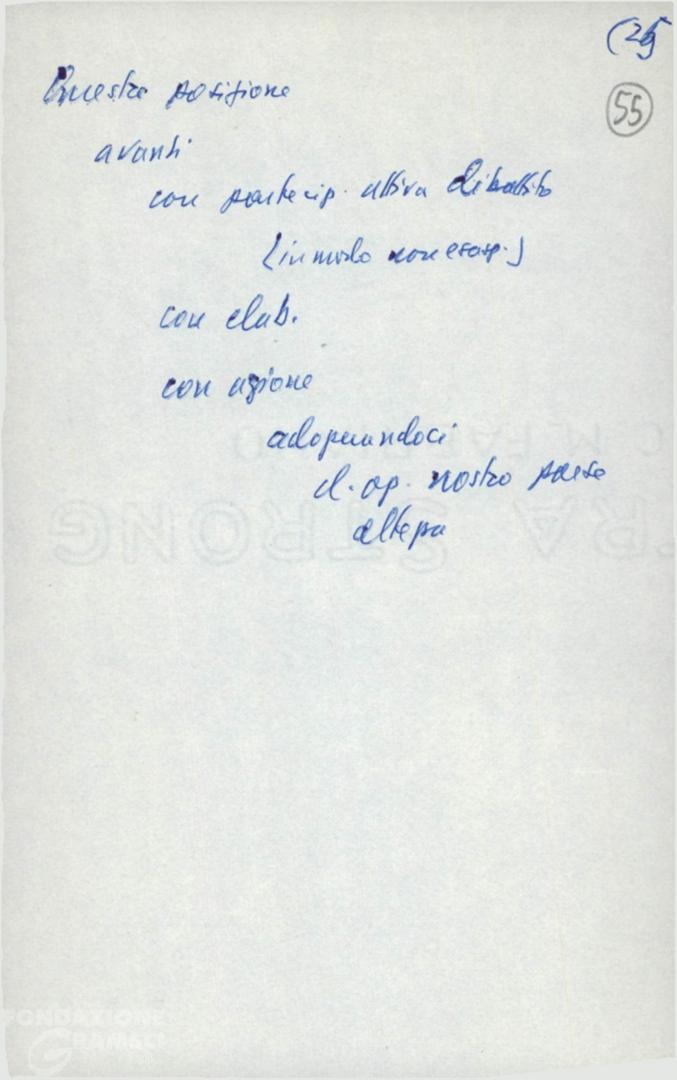 (25
55
Questa posizione
avanti
con partecip. attiva dibattito
(in modo non esasp.)
con elab.
con azione
adoperandoci
cl. op. nostro paese
C M FABRIANO
EXTRA STRONG
FONDAZIONE
GRAMSCI